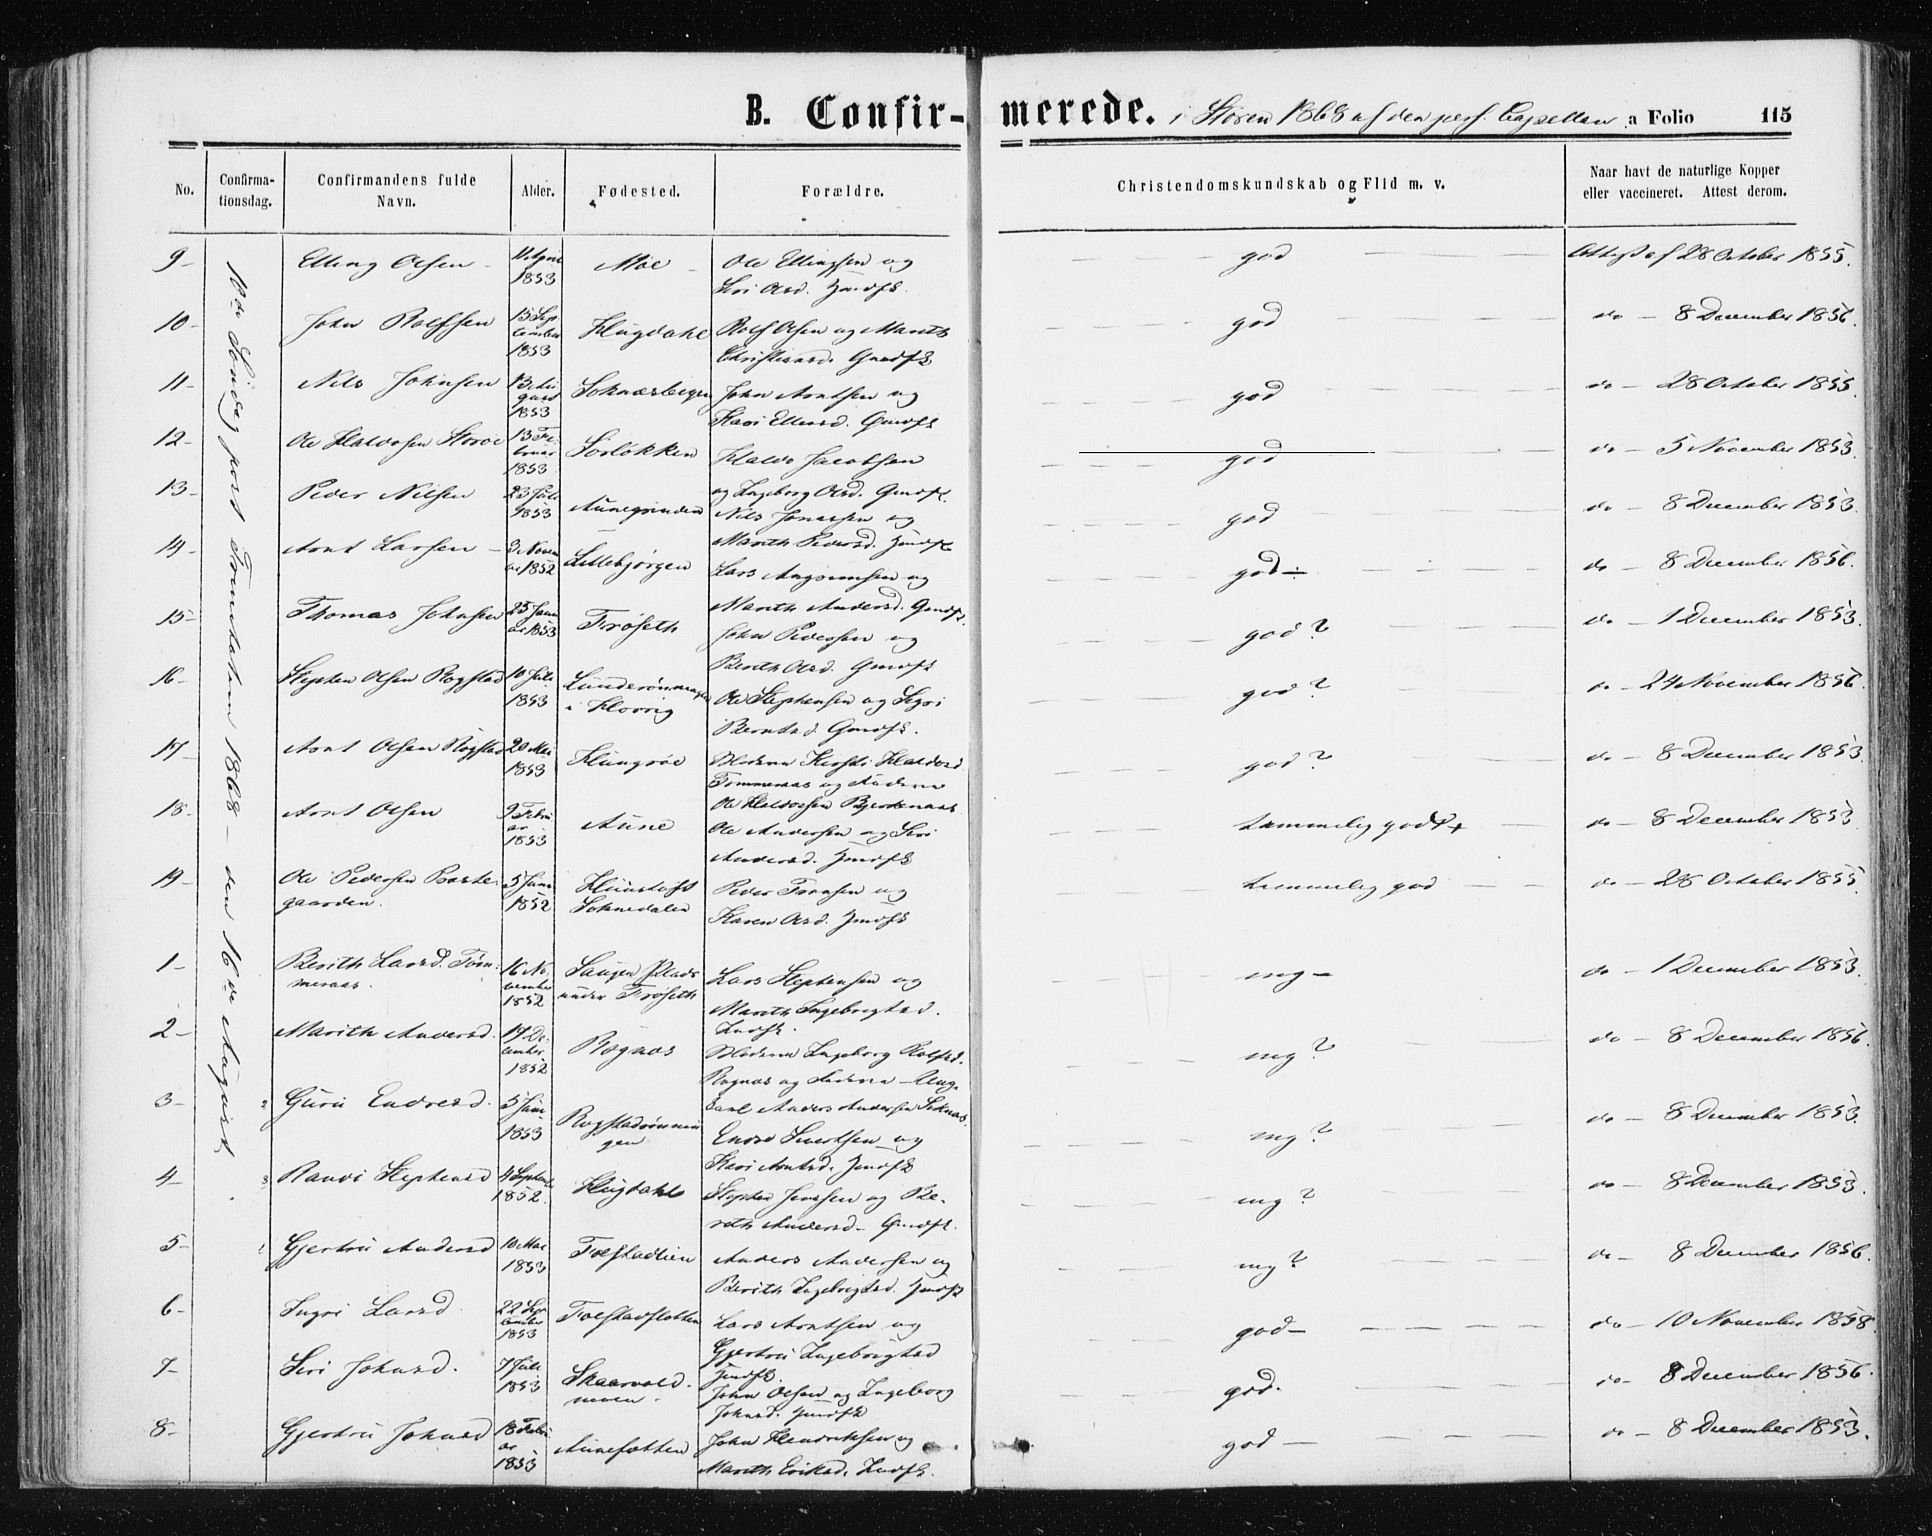 B. Confirmerede. i Støren 1868 af den pers. Capellan a Folio 115
No. Confirmationsdag. Confirmandens fulde Navn. Alder. Fødested. Forældre. Christendomskundskab og Flid m. v. Naar havt de naturlige Kopper eller vaccineret. Attest derom.
10de Søndag post Trinitatem 1868 – den 16de August
9 – Elling Olsen – 11 April 1853 Moe – Ole Ellingsen og Siri Olsd. god Attest af 28 October 1855.
10 – John Rolfsen 15 September 1853 Hugdahl Rolf Olsen og Marith Christiansd. Gmdfk god do – 8 December 1856.
11 – Nils Johnsen 13 August 1853 Soknæsbergen John Arntsen og Kari Ellensd. Gmdfk god do – 28 October 1855.
12 – Ole Haldosen Storøe 13 Februar 1853 Sørløkken Haldo Jacobsen og Ingeborg Olsd. Gmdfk. god do – 5 November 1853.
13 – Peder Nilsen 23 Juli 1853 Aunegrinden Nils Jonassen og Marith Pedersd. god do – 8 December 1853.
14 – Arnt Larsen – 3 November 1852 Lillebjørgen Lars og Marith Andersd. Gmdfk. god – do – 8 December 1856.
15 – Thomas Johnsen 25 Januar 1853 Frøseth John Pedersen og Berith Olsd. Gmdfk god? do – 1 December 1853.
16 – Stephen Olsen Rogstad 10 Juli 1853 Lunderønningen i Horrig Ole Stephensen og Sigri Berntsd Gmdfk. god? do – 24 November 1856.
17 – Arnt Olsen Rogstad 20 Mai 1853 Hungrøe Moderen Kirsti Haldosd. Tømmeraas og Faderen Ole Haldosen Bjerkenaas god? do – 8 December 1853
18 – Arnt Olsen 9 Februar 1853 Aune Ole Andersen og Siri Andersd. temmelig god++ do – 8 December 1853
19 – Ole Pedersen Postegaarden. 5 Juni 1852 Soknedalen Peder og Karen Olsd. temmelig god do – 28 October 1855
1 – Berith Larsd. Tømmeraas. 16 November 1852 Haugen Plads under Frøseth Lars Stephensen og Marith Ingebrigtsd. mg – do – 1 December 1853.
2 – Marith Andersd. 17 December 1852 Rognæs Moderen Ingeborg Rolfsd. Rognæs og Faderen – Ungkarl Anders Andersen Soknæs. mg? do – 8 December 1856.
3 – Guru Endresd. 5 Juni 1853 Rogstadrønningen Endre Sivertsen og Kari Arntsd. mg? do – 8 December 1853.
4 – Randi Stephensd 4 September 1852. Hugdahl Stephen Jonassen og Berith Andersd – Gmdfk. mg? do – 8 December 1853.
5 – Gjertru Andersd 10 Mai 1853 Folstadlien Anders Andersen og Berith Ingebrigtsd. mg? do – 8 December 1856.
6 – Ingri Larsd. 22 September 1853 Folstadsletten Lars Arntsen og Gjertru Ingebrigtsd god – do – 10 November 1858.
7 – Siri Johnsd. 7 Juli 1853 Skaarvoldmoen. John Olsen og Ingeborg Johnsd. god. do – 8 December 1856.
8 – Gjertru Johnsd 18 Februar 1853 Aunefætten John Hendriksen og Marith Eriksd. god – do – 8 December 1853.